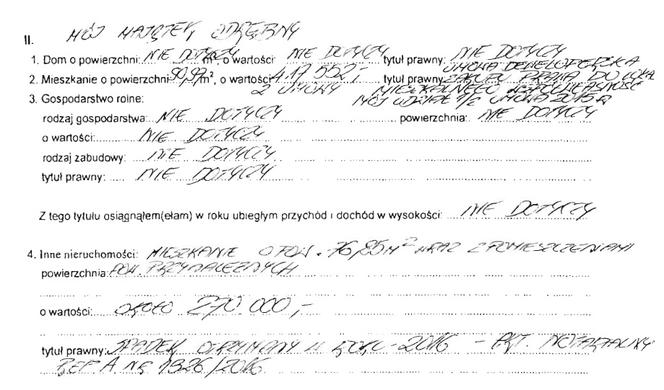 II. MÓJ MAJĄTEK ODRĘBNY
1. Dom o powierzchni: NIE DOTYCZY m², o wartości: NIE DOTYCZY tytuł prawny: NIE DOTYCZY
2. Mieszkanie o powierzchni: m², o wartości: 417 552,- tytuł prawny: UMOWA DEWELOPERSKA
Z UMOWY ZAKUPU PRAWA DO LOKALU
MIESZKALNEGO WSPÓŁWŁASNOŚĆ
3. Gospodarstwo rolne: MÓJ UDZIAŁ 1/2 UMOWA 2015 R
rodzaj gospodarstwa: NIE DOTYCZY powierzchnia: NIE DOTYCZY
o wartości: NIE DOTYCZY
rodzaj zabudowy: NIE DOTYCZY
tytuł prawny: NIE DOTYCZY
Z tego tytułu osiągnąłem(ełam) w roku ubiegłym przychód i dochód w wysokości: NIE DOTYCZY
4. Inne nieruchomości: MIESZKANIE O POW. 76,85 m² WRAZ Z POMIESZCZENIAMI
powierzchnia: POW. PRZYNALEŻNYCH
o wartości: OKOŁO 270 000,-
tytuł prawny: SPADEK OTRZYMANY W ROKU 2016 - AKT NOTARIALNY
REP. A NR 1326/2016